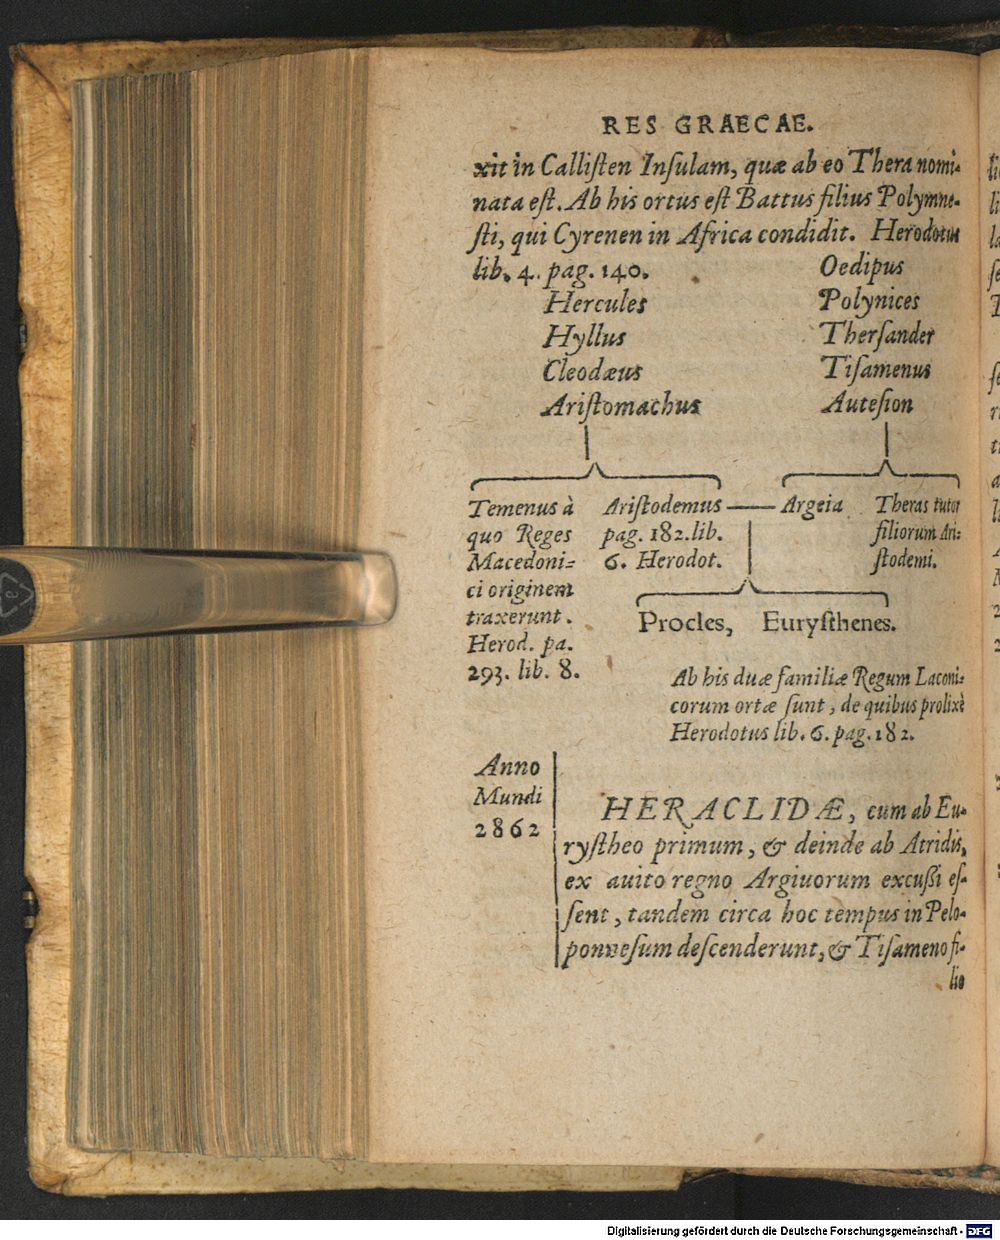 RES GRAECAE.
xit in Calliſten Inſulam, quæ ab eo Thera nomi-
nata eſt. Ab his ortus eſt Battus filius Polymne-
ſti, qui Cyrenen in Africa condidit. Herodotus
lib. 4. pag. 140.
Oedipus
Hercules
Polynices
Hyllus
Therſander
Cleodæus
Tiſamenus
Ariſtomachus
Auteſion
Temenus à
quo Reges
Macedoni-
ci originem
traxerunt.
Herod. pa.
293. lib. 8.
Ariſtodemus
pag. 182. lib.
6. Herodot.
Argeia
Theras tutor
filiorum Ari-
ſtodemi.
Procles, Euryſthenes.
Ab his duæ familiæ Regum Laconi-
corum ortæ ſunt, de quibus prolixè
Herodotus lib. 6. pag. 182.
Anno
Mundi
2862
HERACLIDÆ, cum ab Eu-
ryſtheo primum, & deinde ab Atridis,
ex auito regno Argiuorum excußi eſ-
ſent, tandem circa hoc tempus in Pelo-
ponneſum deſcenderunt, & Tiſameno fi-
lio
Digitalisierung gefördert durch die Deutsche Forschungsgemeinschaft - DFG